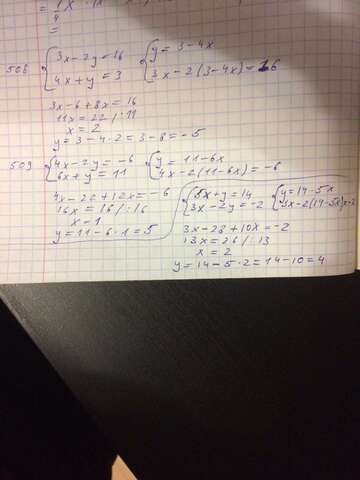 508 { 3x-2y=16 { y=3-4x
4x+y=3 3x-2(3-4x)=16
3x-6+8x=16
11x=22 /:11
x=2
y=3-4·2=3-8=-5
509 { 4x-2y=-6 { y=11-6x
6x+y=11 4x-2(11-6x)=-6
4x-22+12x=-6
16x=16 /:16
x=1
y=11-6·1=5
{ 5x+y=14 { y=14-5x
3x-2y=-2 3x-2(14-5x)=-2
3x-28+10x=-2
13x=26 /:13
x=2
y=14-5·2=14-10=4